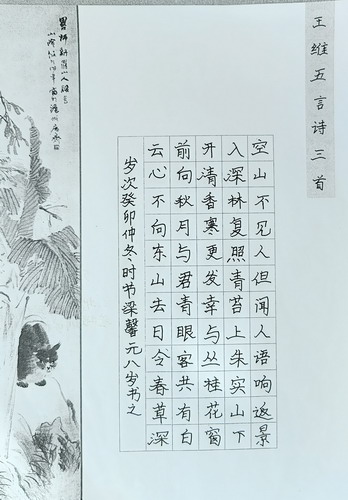 王维五言诗三首
空山不见人但闻人语响返景
入深林复照青苔上朱实山下
开清香寒更发幸与丛桂花窗
前向秋月与君青眼客共有白
云心不向东山去日令春草深
岁次癸卯仲冬时节梁馨元八岁书之